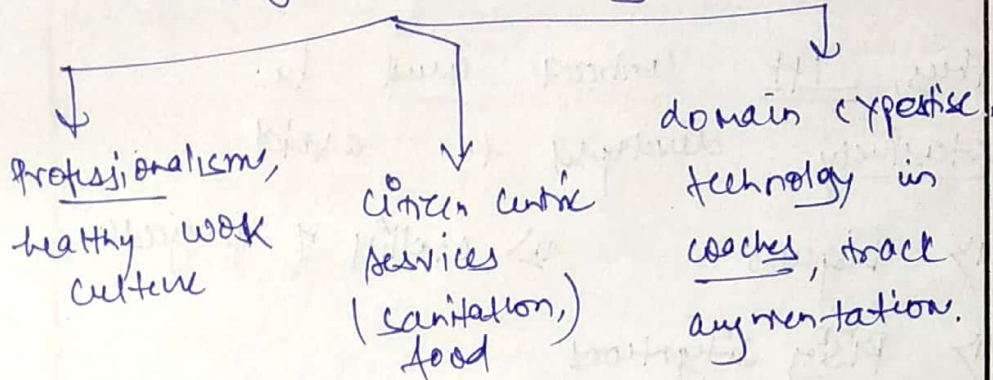 Professionalism,
healthy work
culture
citizen centric
services
(sanitation,)
food
domain expertise,
technolgy in
coaches, track
augmentation.